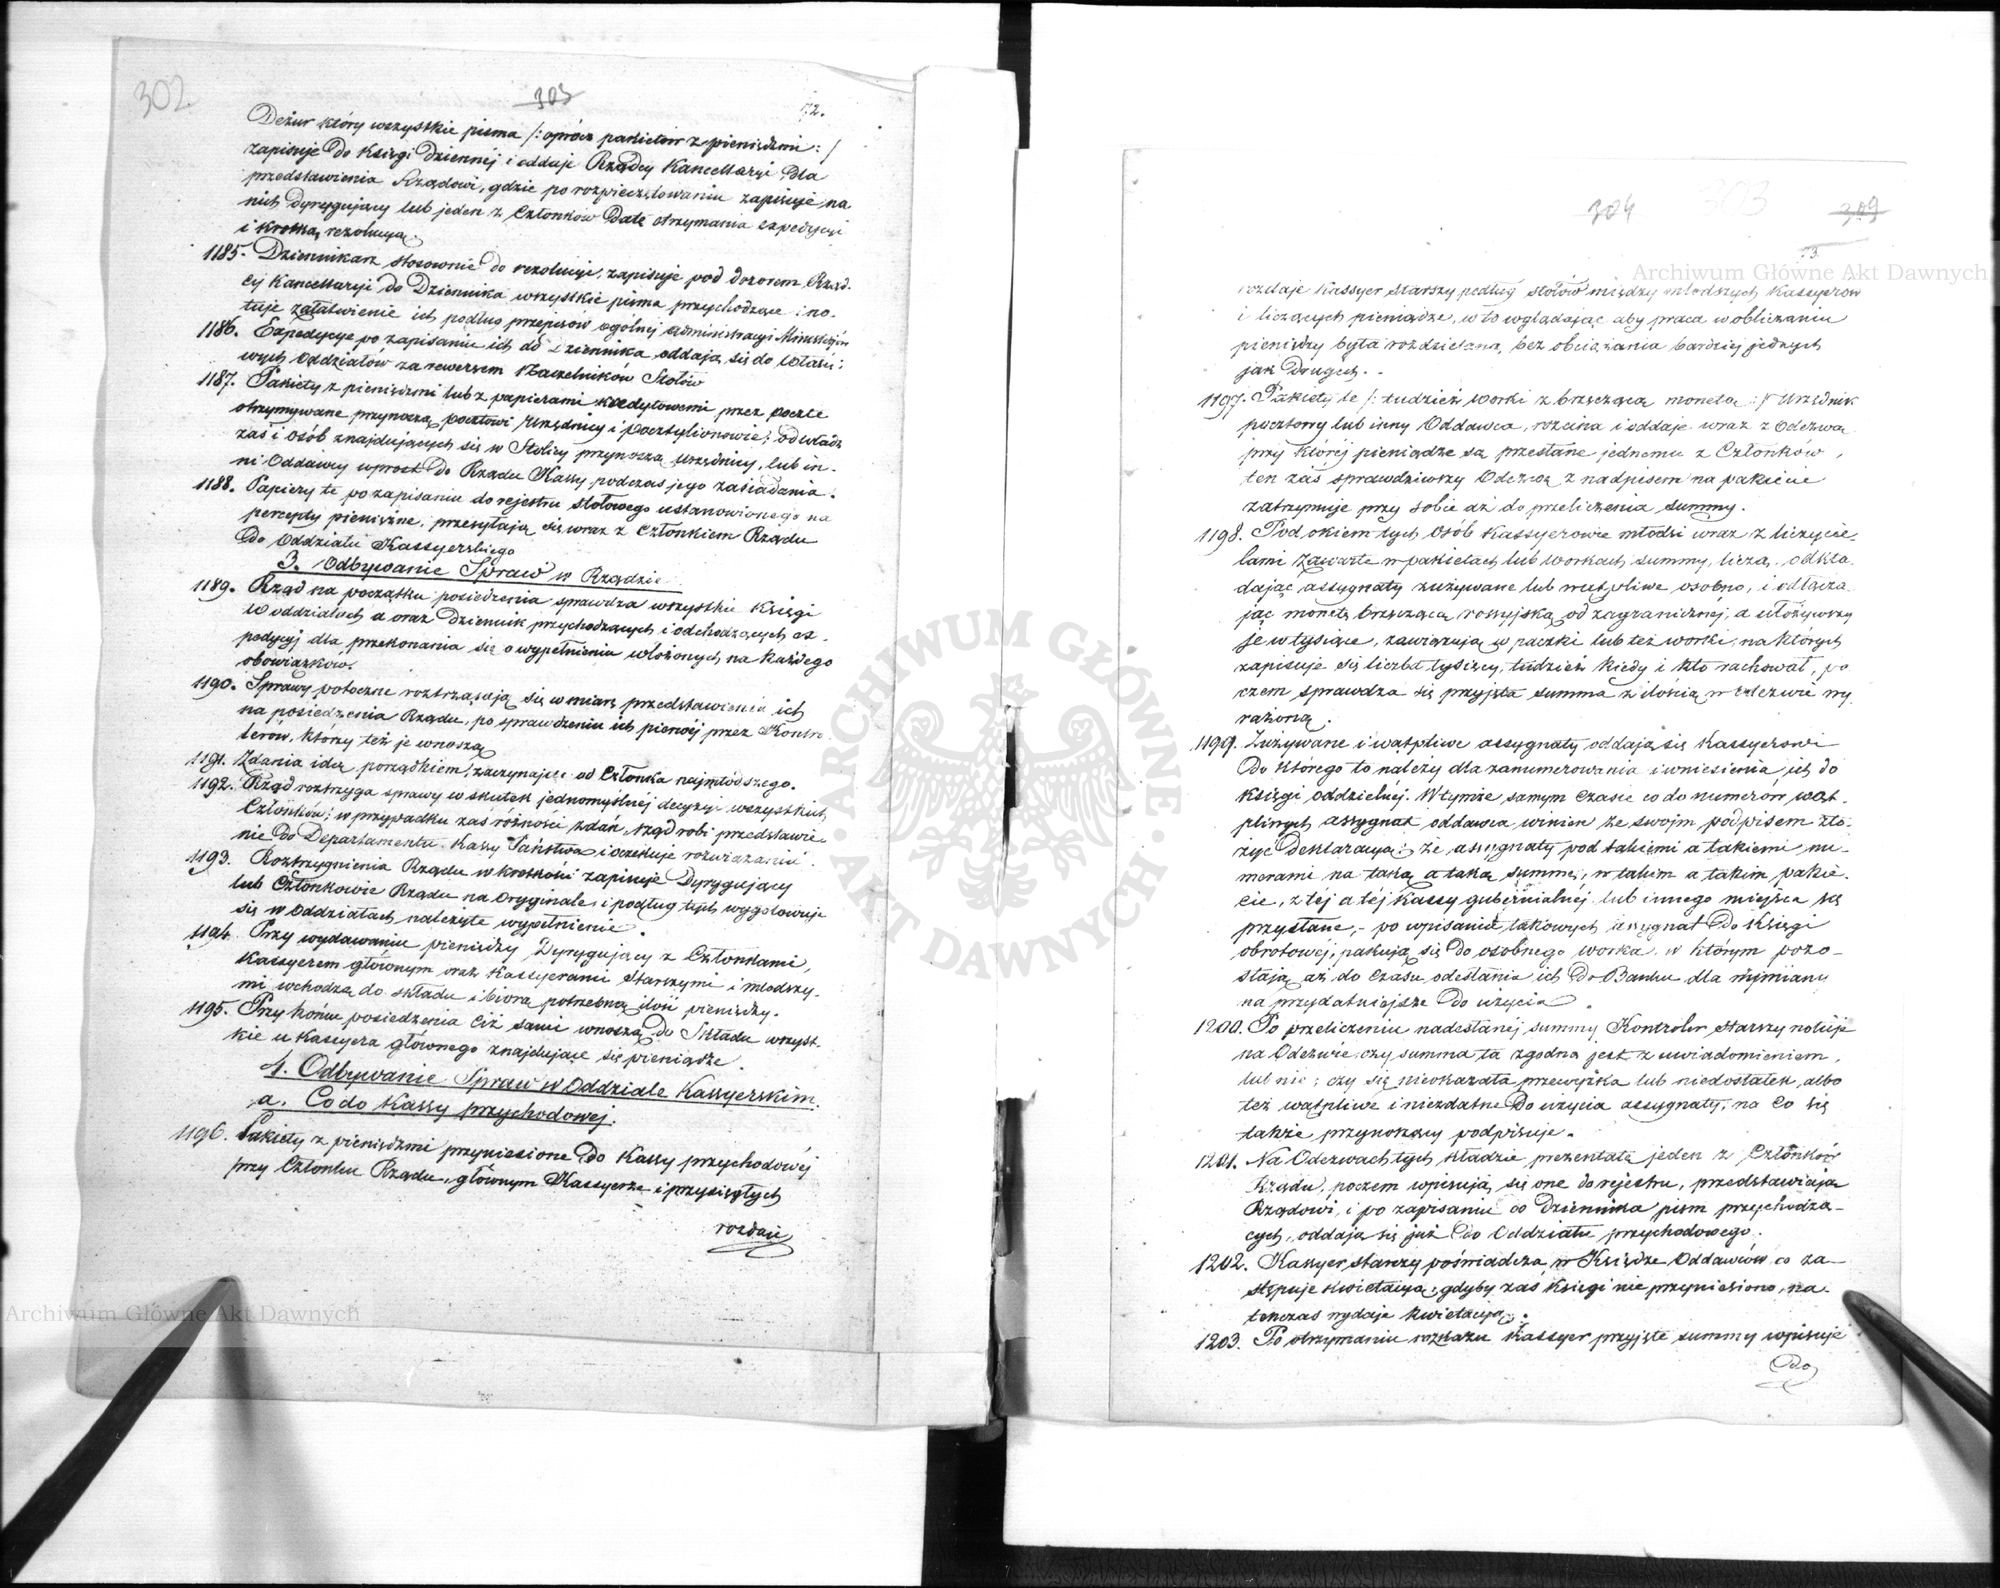 302
303
72.
Deżur który wszystkie pisma /: oprócz pakietów z pieniędzmi :/
zapisuje do Księgi dziennéj i oddaje Rządcy Kancellaryi dla
przedstawienia Rządowi, gdzie po rozpieczętowaniu zapisuje na
nich Dyrygujący lub jeden z Członków datę otrzymania expedycyi
i krotką rezolucyą.
1185. Dziennikarz stosownie do rezolucyi, zapisuje pod dozorem Rząd-
cy Kancellaryi do Dziennika wszystkie pisma przychodzące i no-
tuje załatwienie ich podług przepisów ogólnej administracyi Ministeryów
1186. Expedycye po zapisaniu ich do dziennika oddają się do właści-
wych Oddziałów za rewersem Naczelników Stołów
1187. Pakiety z pieniędzmi lub z papierami kredytowemi przez pocztę
otrzymywane przynoszą pocztowi Urzędnicy i pocztylionowie; od władz
zaś i osób znajdujących się w Stolicy przynoszą urzędnicy, lub in-
ni Oddawcy wprost do Rządu Kassy podczas jego zasiadania.
1188. Papiery te po zapisaniu do rejestru stołowego ustanowionego na
percepty pieniężne, przesyłają się wraz z Członkiem Rządu
do Oddziału Kassyerskiego
3. Odbywanie Spraw w Rządzie
1189. Rząd na początku posiedzenia sprawdza wszystkie Księgi
w oddziałach a oraz dziennik przychodzących i odchodzących ex-
pedycyj dla przekonania się o wypełnieniu włożonych na każdego
obowiązków.
1190. Sprawy potoczne roztrząsają się w miarę przedstawienia ich
na posiedzenia Rządu, po sprawdzeniu ich pierwéj przez Kontro-
lerów, którzy też je wnoszą
1191. Zdania idą porządkiem, zaczynając od Członka najmłodszego.
1192. Rząd roztrzyga sprawy w skutek jednomyślnéj decyzyi wszystkich
Członków; w przypadku zaś różności zdań, rząd robi przedstawie-
nie do Departamentu Kassy Państwa i oczekuje rozwiązania.
1193. Roztrzygnienia Rządu w krotkości zapisuje Dyrygujący
lub Członkowie Rządu na oryginale, i podług tych wygotowuje
się w Oddziałach należyte wypełnienie.
1194. Przy wydawaniu pieniędzy Dyrygujący z Członkami,
Kassyerem głównym oraz Kassyerami Starszymi i młodszy-
mi wchodzą do składu i biorą potrzebną ilość pieniędzy.
1195. Przy końcu posiedzenia ciż sami wnoszą do Składu wszyst-
kie u Kassyera głównego znajdujące się pieniądze.
4. Odbywanie Spraw w Oddziale Kassyerskim.
a. Co do Kassy przychodowej.
1196. Pakiety z pieniędzmi przyniesione do Kassy przychodowéj
przy Członku Rządu, głównym Kassyerze i przysięgłych
rozdaje
304
303
309
73.
rozdaje Kassyer starszy podług stołów między młodszych Kassyerów
i liczących pieniądze, w to wglądając aby praca w obliczaniu
pieniędzy była rozdzielana, bez obciążania bardziej jednych
jak drugich.
1197. Pakiety te /: tudzież worki z brzęczącą monetą :/ Urzędnik
pocztowy lub inny Oddawca, rozcina i oddaje wraz z Odezwą
przy której pieniądze są przesłane jednemu z Członków,
ten zaś sprawdziwszy Odezwę z nadpisem na pakiecie
zatrzymuje przy sobie aż do przeliczenia summy.
1198. Pod okiem tych osób Kassyerowie młodsi wraz z liczycie-
lami zawarte w pakietach lub workach summy, liczą, odkła-
dając assygnaty zużywane lub wątpliwe osobno, i odłącza-
jąc monetę brzęczącą rossyjską od zagranicznéj, a ułożywszy
je w tysiące, zawiązują w paczki lub też worki, na których
zapisuje się liczba tysięcy, tudzież kiedy i kto rachował, po
czem sprawdza się przyjęta summa z ilością w Odezwie wy-
rażoną.
1199. Zużywane i wątpliwe assygnaty oddają się Kassyerowi
do którego to należy dla zanumerowania i wniesienia ich do
księgi oddzielnéj. W tymże samym czasie co do numerów wąt-
pliwych assygnat oddawca winien ze swojm podpisem zło-
żyć Deklaracyą; że assygnaty pod takiemi a takiemi nu-
merami na taką a taką summę, w takim a takim pakie-
cie, z téj a téj Kassy gubernialnéj lub innego miejsca są
przysłane, - po wpisaniu takowych assygnat do Księgi
obrotowéj, pakują się do osobnego worka w którym pozo-
stają aż do czasu odesłania ich do Banku dla wymiany
na przydatniejsze do użycia.
1200. Po przeliczeniu nadesłanéj summy Kontroler starszy notuje
na Odezwie, czy summa ta zgodna jest z uwiadomieniem,
lub nie; czy się nieokazała przewyżka lub niedostatek, albo
też wątpliwe i niezdatne do użycia assygnaty, na co się
także przynoszący podpisuje.
1201. Na Odezwach tych kładzie prezentatę jeden z Członków
Rządu, poczem wpisują się one do rejestru, przedstawiają
Rządowi, i po zapisaniu do Dziennika pism przychodzą-
cych, oddają się już do Oddziału przychodowego.
1202. Kassyer starszy poświadcza w Księdze Oddawców co za-
stępuje kwietacyą, gdyby zaś Księgi nie przyniesiono, na-
tenczas wydaje kwietacyą.
1203. Po otrzymaniu rozkazu Kassyer przyjęte summy wpisuje
do
Archiwum Główne Akt Dawnych
Archiwum Główne Akt Dawnych
ARCHIWUM GŁÓWNE
AKT DAWNYCH